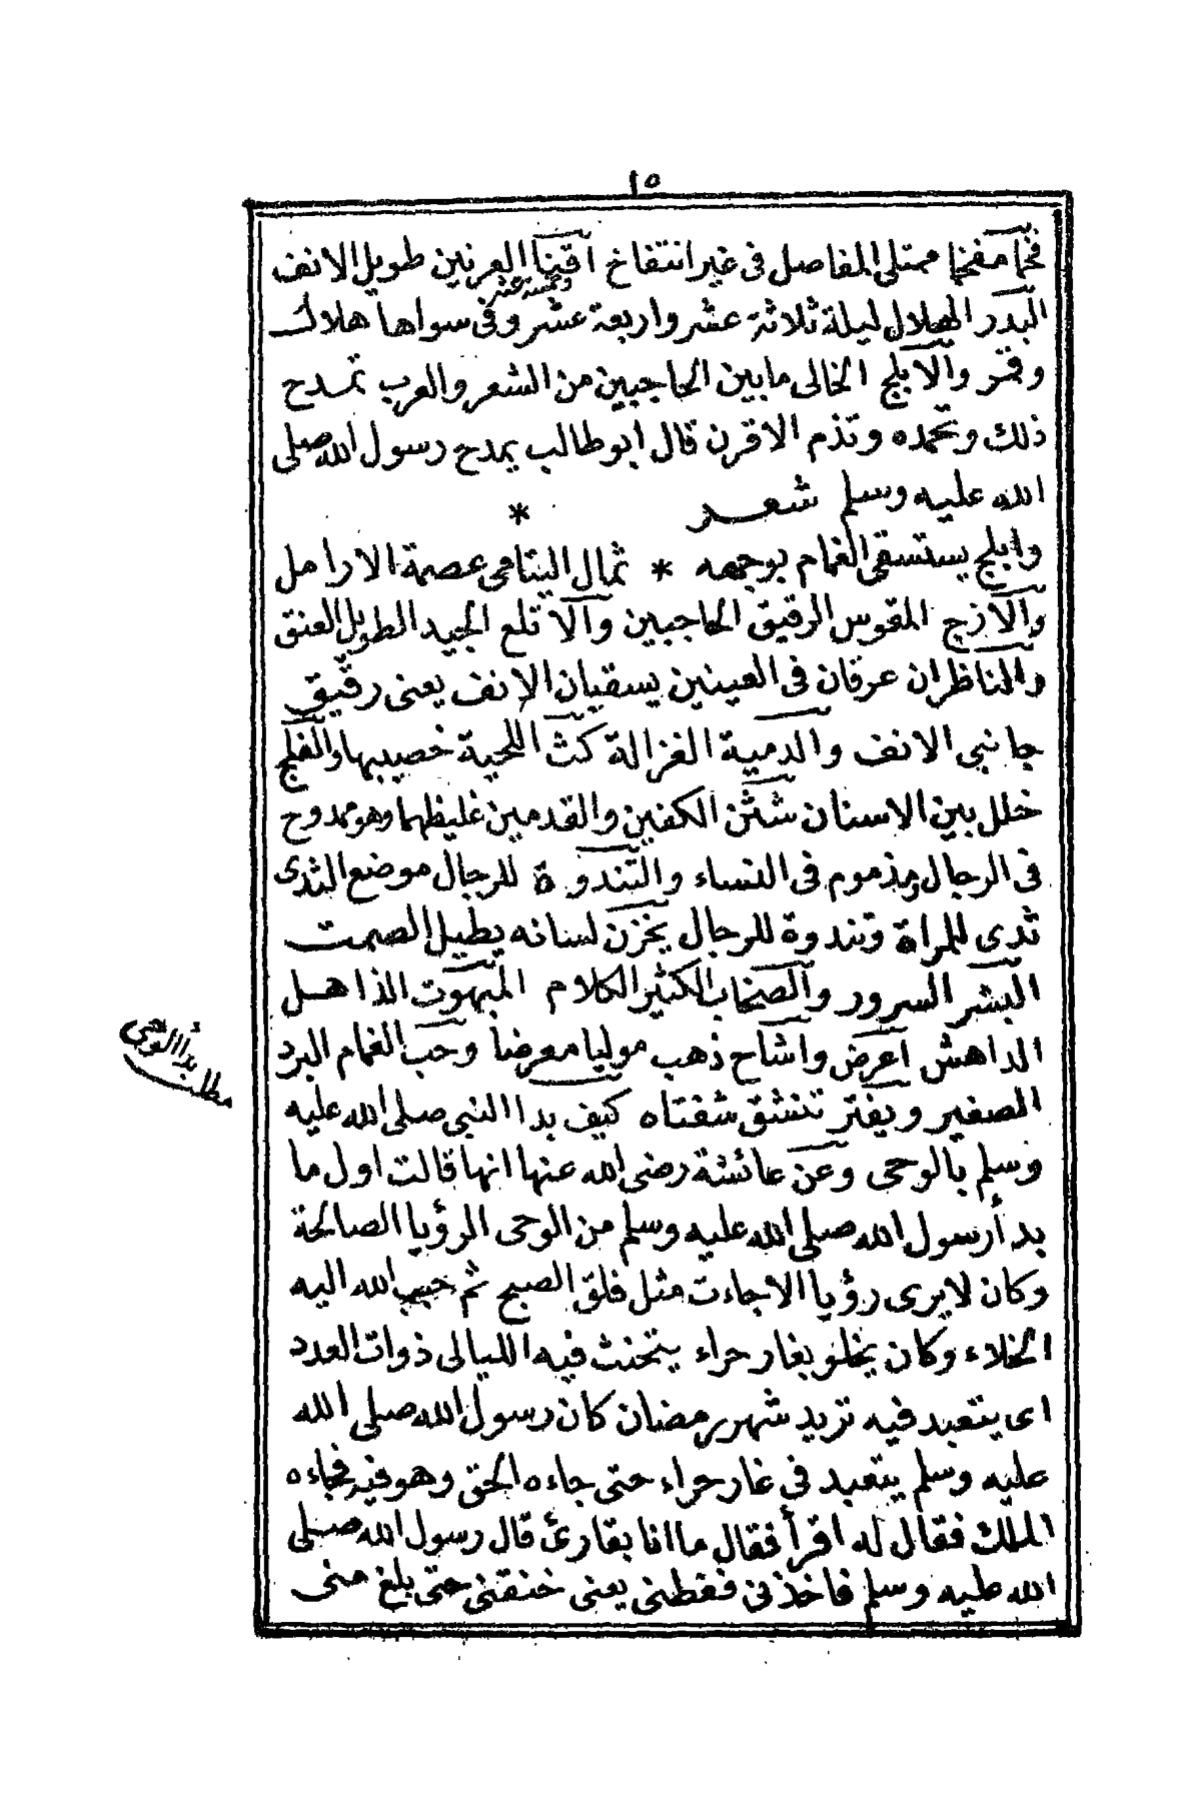 ١٥
فخما مفخما ممتلى المفاصل فى غير انتفاخ اقنا العرنين طويل الانف
البدر الهلال ليلة ثلاثة عشر واربعة عشر وخمسة عشر وفى سواها هلال
وقمر والابلج الخالى ما بين الحاجبين من الشعر والعرب تمدح
ذلك وتحمده وتذم الاقرن قال ابو طالب يمدح رسول الله صلى
الله عليه وسلم شعر *
وابلج يستسقى الغمام بوجهه * ثمال اليتامى عصمة الارامل
والازج المقوس الرقيق الحاجبين والاتلع الجيد الطويل العنق
والناظران عرقان فى العينين يسقيان الانف يعنى رقيق
جانبى الانف والدمية الغزالة كث اللحية خصيبها والفلج
خلل بين الاسنان شثن الكفين والقدمين غليظهما وهو ممدوح
فى الرجال ومذموم فى النساء والتندوة للرجال موضع الثدى
ثدى للمراة وتندوة للرجال يخزن لسانه يطيل الصمت
البشر السرور والصخاب الكثير الكلام المبهوت الذاهل
الداهش اعرض واشاح ذهب موليا معرضا وحب الغمام البرد
الصغير ويفتر تنشق شفتاه كيف بدا النبى صلى الله عليه
وسلم بالوحى وعن عائشة رضى الله عنها انها قالت اول ما
بدأ رسول الله صلى الله عليه وسلم من الوحى الرؤيا الصالحة
وكان لا يرى رؤيا الا جاءت مثل فلق الصبح ثم حبب الله اليه
الخلاء وكان يخلو بغار حراء يتحنث فيه الليالى ذوات العدد
اى يتعبد فيه تريد شهر رمضان كان رسول الله صلى الله
عليه وسلم يتعبد فى غار حراء حتى جاءه الحق وهو فيه فجاءه
الملك فقال له اقرأ فقال ما انا بقارئ قال رسول الله صلى
الله عليه وسلم فاخذنى فغطنى يعنى خنقنى حتى بلغ منى
مطلب بدأ الوحى